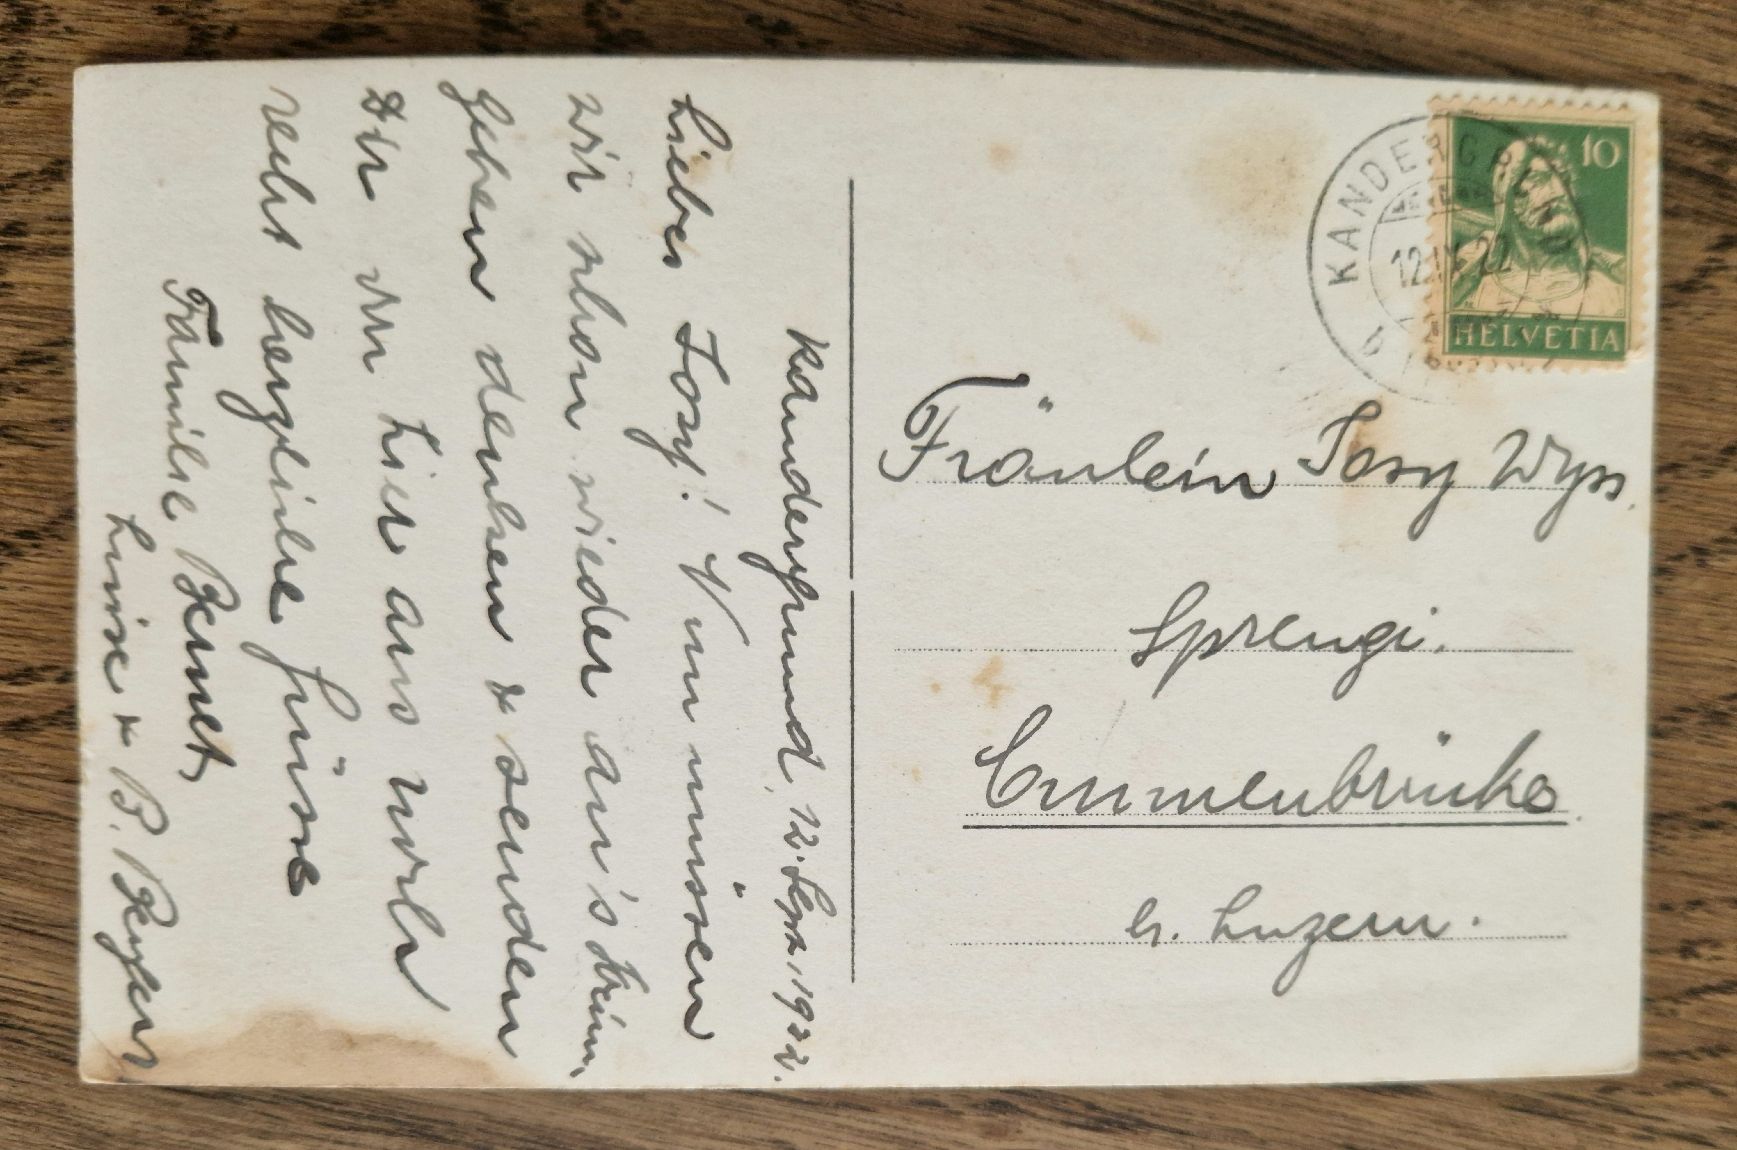 Kandergrund, 12. Sept. 1922.
Liebes Josy! Nun müssen
wir schon wieder an's Heim
gehen denken & senden
Dir von hier aus noch
recht herzliche Grüsse
Familie Bernet,
Luise & B. Rey
KANDERGRUND
12.IX.22
10
HELVETIA
Fräulein Josy Wyss.
Sprengi.
Emmenbrücke.
b. Luzern.